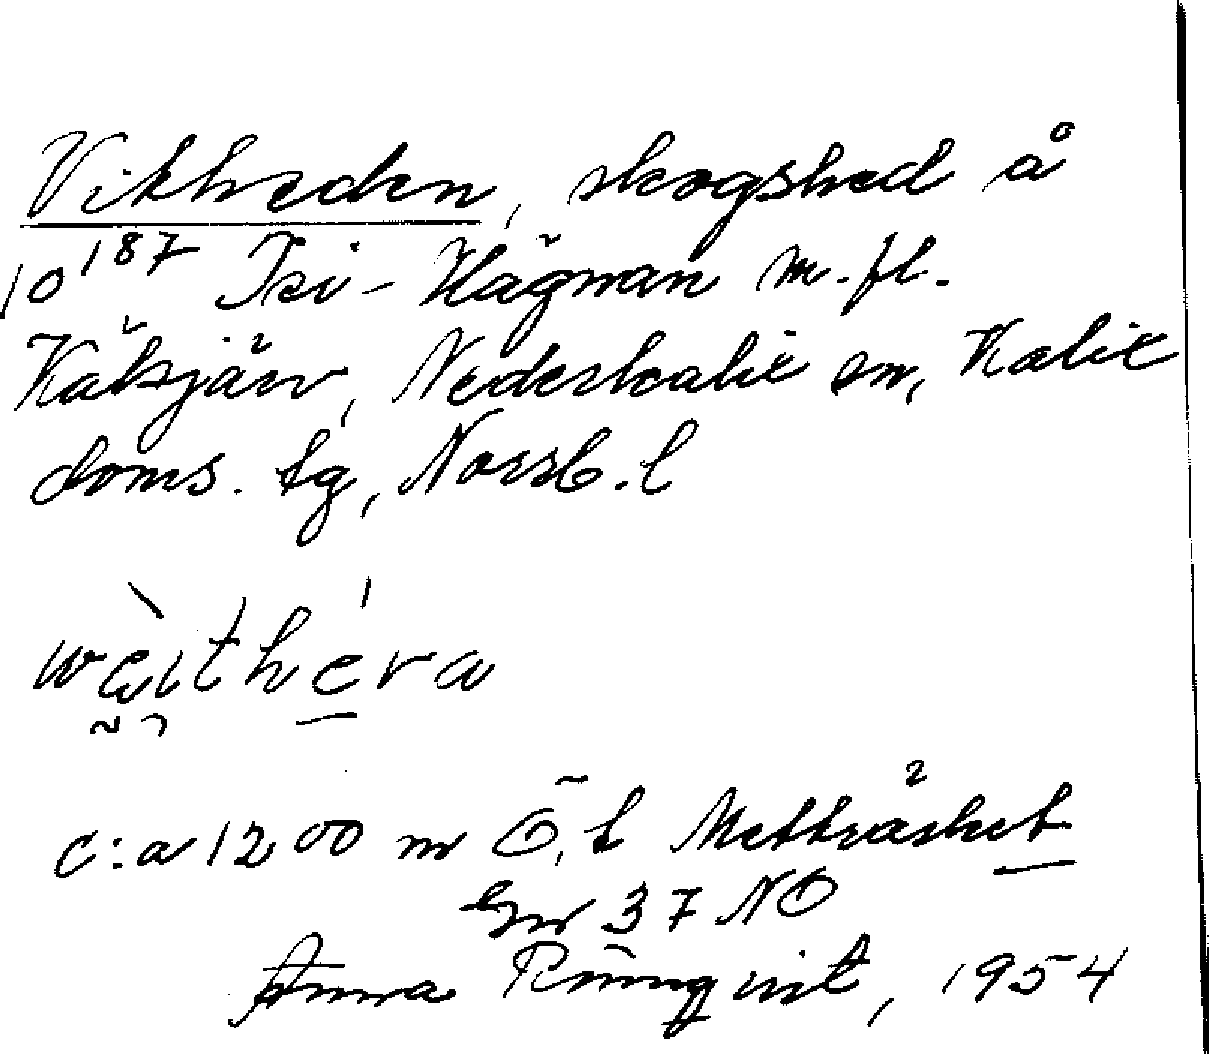 Vikheden, skogshed å
10 187 Isi-Hägman m.fl.
Räktjärv, Nederkalix sn, Kalix
doms. tg, Norrb. l
c:a 1200 m Ö, t Metträsket
37 NO
Anna Rönnqvist, 1954